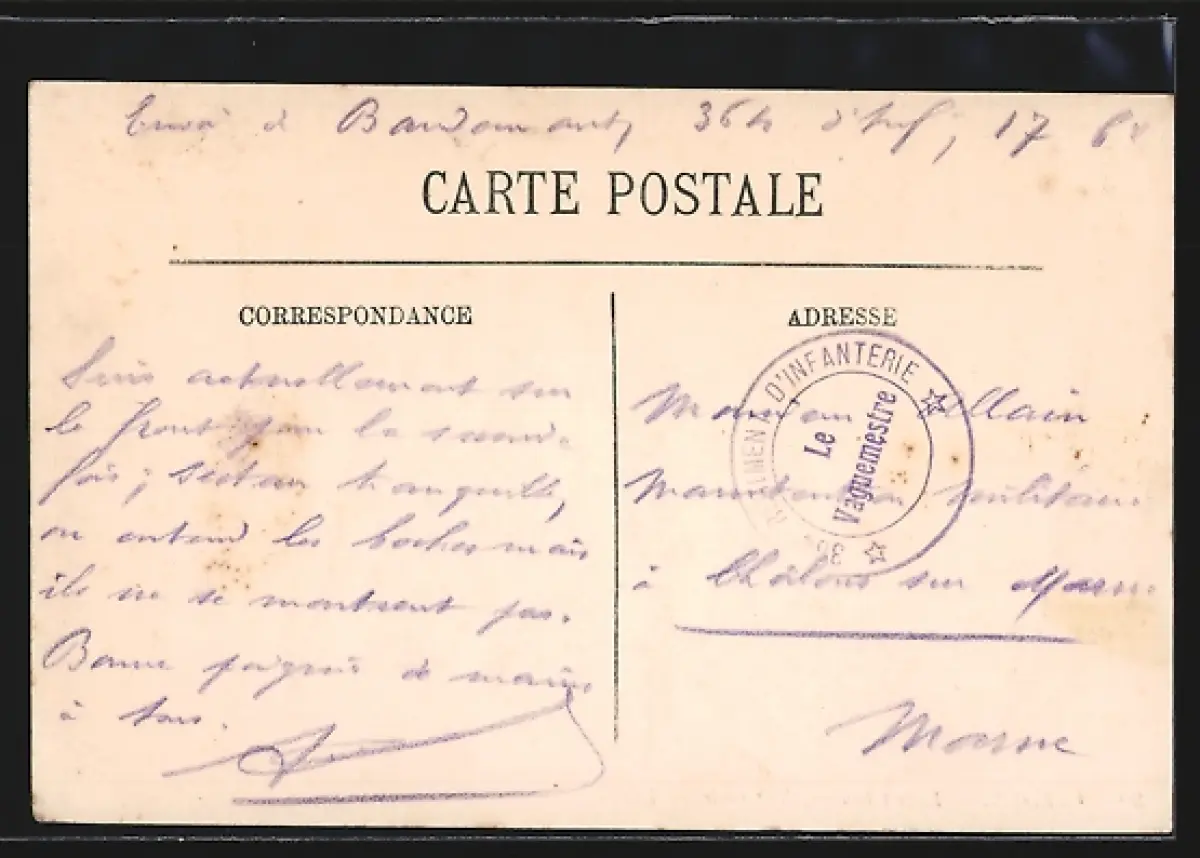 Envoi de Baudomont, 364 d'Inf, 17
CARTE POSTALE
CORRESPONDANCE
Suis actuellement sur
le front pour la seconde
fois; secteur tranquille,
on entend les boches mais
ils ne se montrent pas.
Bonne poignée de mains
à tous.
ADRESSE
D'INFANTERIE
Le
Vaguemestre
Monsieur Allain
Manutention militaire
à Châlons sur Marne
Marne